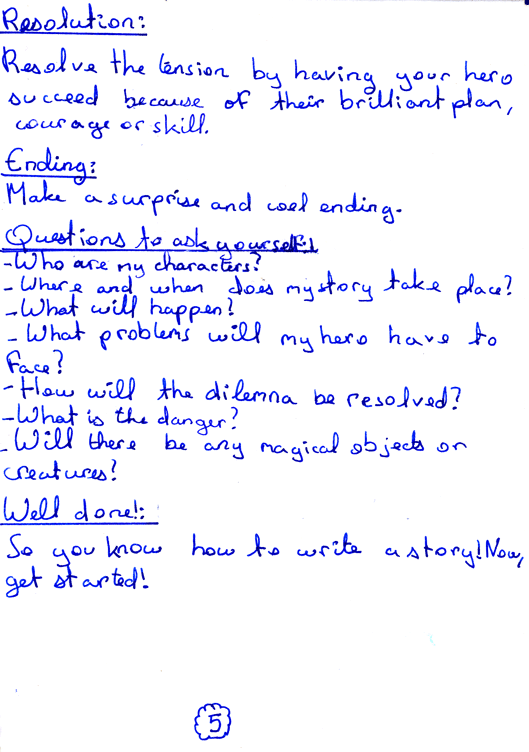 Resolution:
Resolve the tension by having your hero
succeed because of their brilliant plan,
courage or skill.
Ending:
Make a surprise and cool ending.
Questions to ask yourself:
-Who are my characters?
-Where and when does my story take place?
-What will happen?
-What problems will my hero have to
face?
-How will the dilemna be resolved?
-What is the danger?
-Will there be any magical objects or
creatures?
Well done!:
So you know how to write a story! Now,
get started!
5